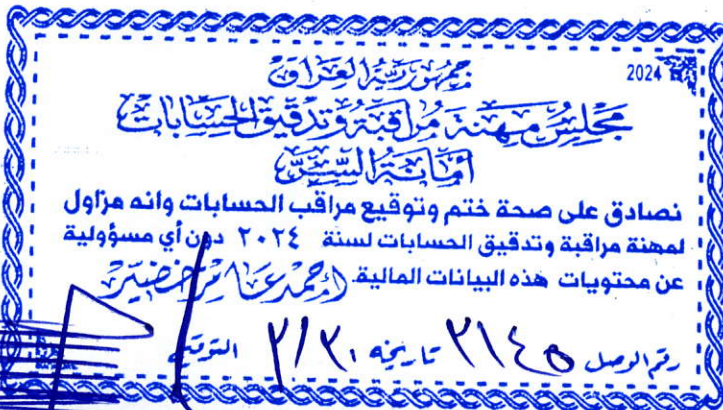 2024
جمهورية العراق
مجلس مهنة مراقبة وتدقيق الحسابات
أمانة السر
نصادق على صحة ختم وتوقيع مراقب الحسابات وانه مزاول
لمهنة مراقبة وتدقيق الحسابات لسنة ٢٠٢٤ دون أي مسؤولية
عن محتويات هذه البيانات المالية. احمد عامر خضير
رقم الوصل ٣١٤٥ تاريخه ٣/٣٠ التوقيع